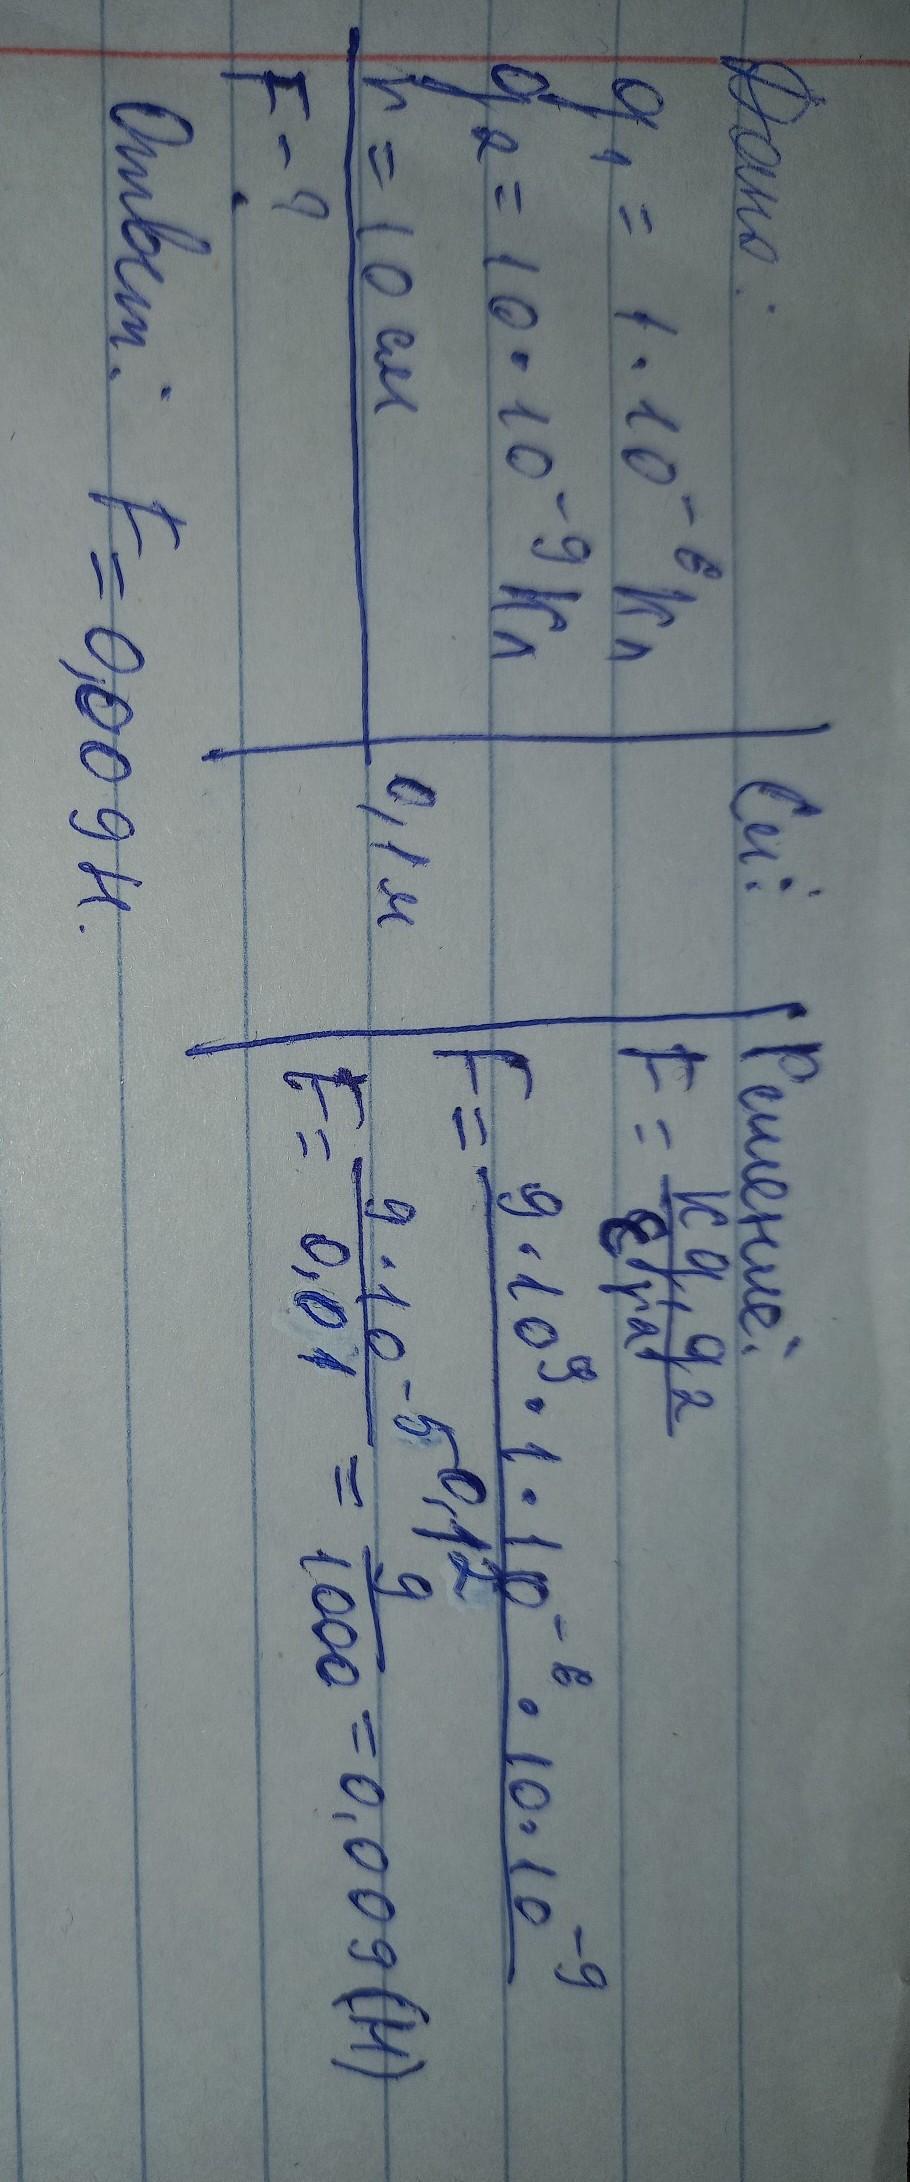 Дано:
q₁ = 1·10⁻⁶ Кл
q₂ = 10·10⁻⁹ Кл
r = 10 см
F-?
Си:
0,1 м
Решение:
F = kq₁q₂ / εr²
F = 9·10⁹·1·10⁻⁶·10·10⁻⁹ / 0,1²
F = 9·10⁻⁵ / 0,01 = 9 / 1000 = 0,009(Н)
Ответ: F = 0,009 Н.